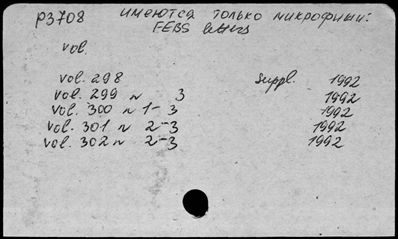 р3708 имеются только микрофиши:
FEBS letters
vol.
vol. 298 Suppl. 1992
vol. 299 N 3 1992
vol. 300 N 1-3 1992
vol. 301 N 2-3 1992
vol. 302 N 2-3 1992